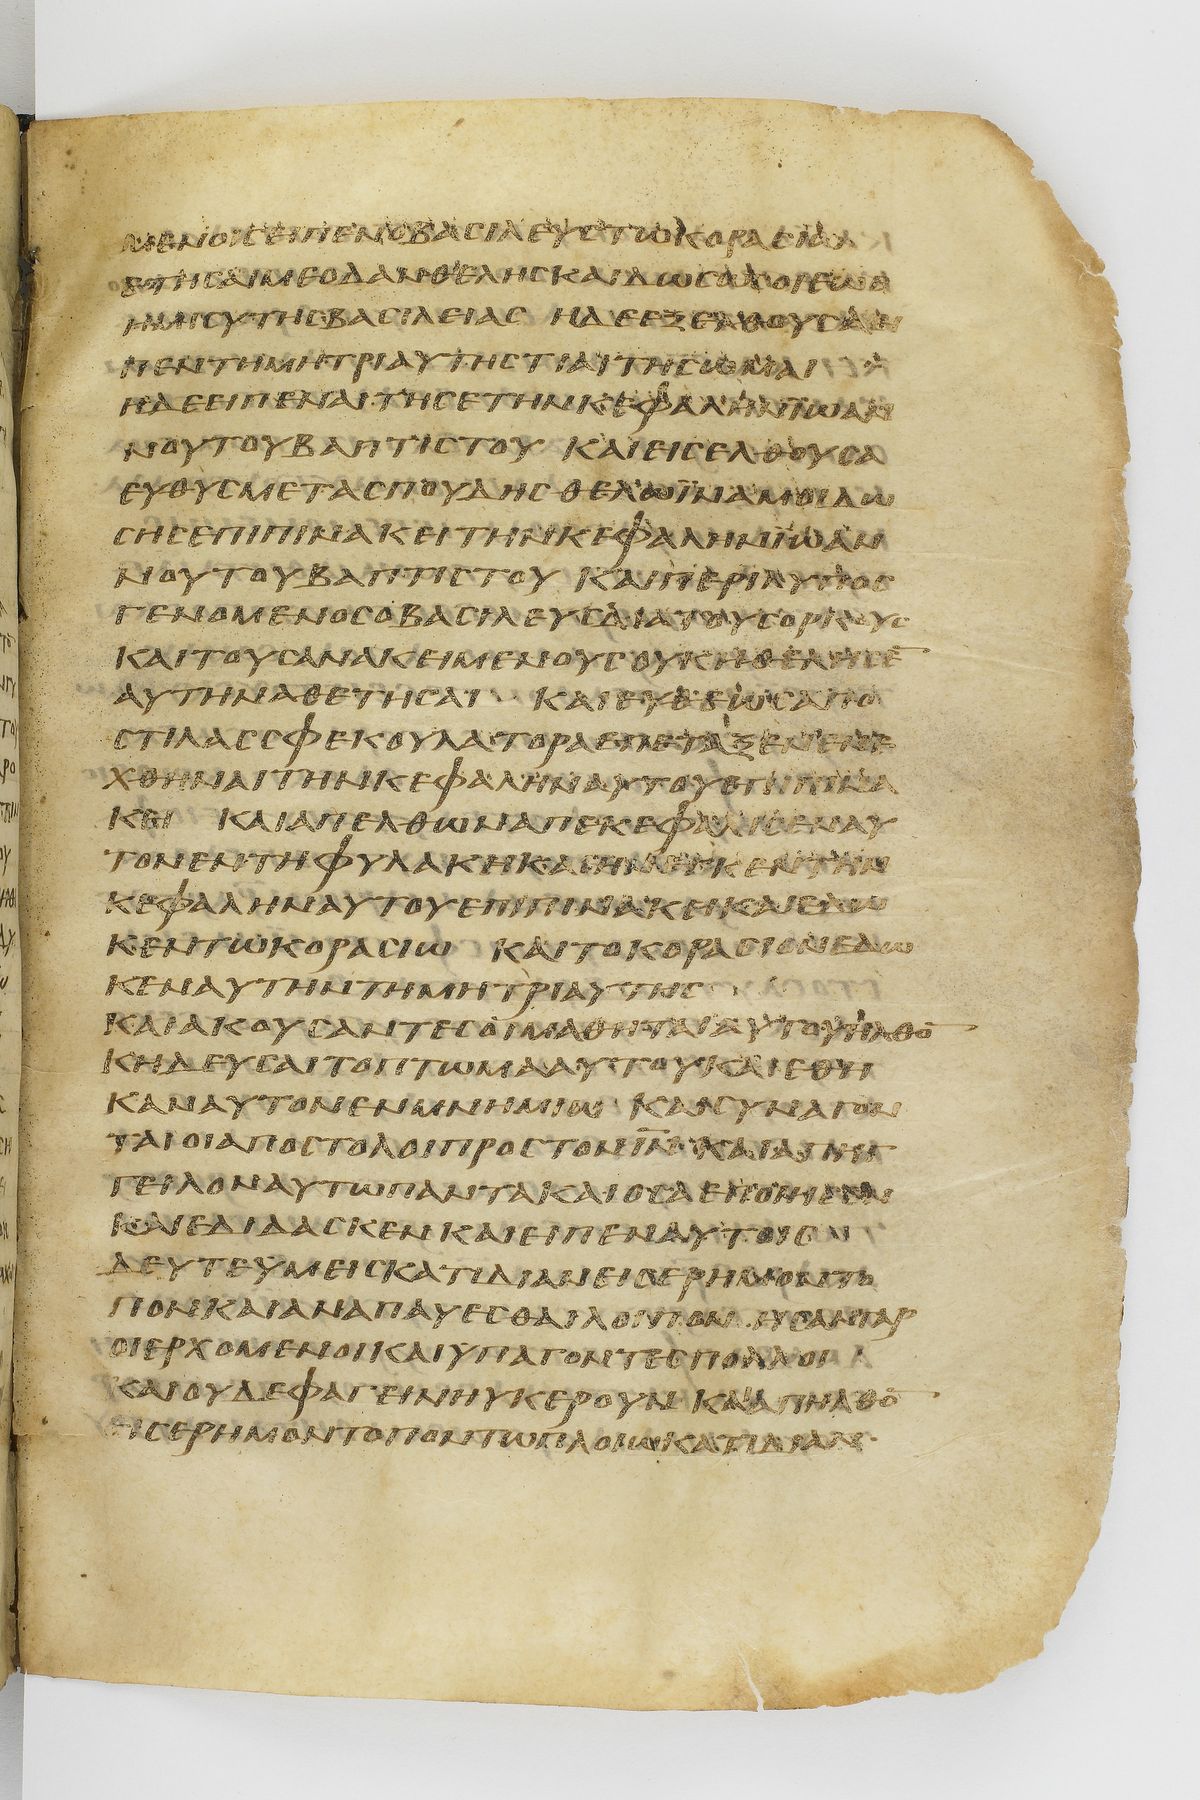 ΜΕΝΟΙϹ ΕΙΠΕΝ Ο ΒΑϹΙΛΕΥϹ ΤΩ ΚΟΡΑϹΙΩ
ΜΕ Ο ΑΝ ΘΕΛΗϹ ΚΑΙ ΔΩϹΩ
ΗΜΙϹΥ ΤΗϹ ΒΑϹΙΛΕΙΑϹ Η ΔΕ ΕΞΕΛΘΟΥϹΑ ΕΙ
ΠΕΝ ΤΗ ΜΗΤΡΙ ΑΥΤΗϹ ΤΙ ΑΙΤΗϹΩΜΑΙ
Η ΔΕ ΕΙΠΕΝ ΑΙΤΗϹΕ ΤΗΝ ΚΕΦΑΛΗΝ ΙΩΑΝ
ΝΟΥ ΤΟΥ ΒΑΠΤΙϹΤΟΥ ΚΑΙ ΕΙϹΕΛΘΟΥϹΑ
ΕΥΘΥϹ ΜΕΤΑ ϹΠΟΥΔΗϹ ΘΕΛΩ ΪΝΑ ΜΟΙ ΔΩ
ϹΗϹ ΕΠΙ ΠΙΝΑΚΕΙ ΤΗΝ ΚΕΦΑΛΗΝ ΪΩΑΝ
ΝΟΥ ΤΟΥ ΒΑΠΤΙϹΤΟΥ ΚΑΙ ΠΕΡΙΛΥΠΟϹ
ΓΕΝΟΜΕΝΟϹ Ο ΒΑϹΙΛΕΥϹ ΔΙΑ ΤΟΥϹ ΟΡΚΟΥϹ
ΚΑΙ ΤΟΥϹ ΑΝΑΚΕΙΜΕΝΟΥϹ ΟΥΚ ΗΘΕΛΗϹΕ̅
ΑΥΤΗΝ ΑΘΕΤΗϹΑΙ ΚΑΙ ΕΥΘΕΩϹ ΑΠΟ
ϹΤΙΛΑϹ ϹΦΕΚΟΥΛΑΤΟΡΑ ΕΠΕΤΑΞΕΝ ΕΝΕ
ΧΘΗΝΑΙ ΤΗΝ ΚΕΦΑΛΗΝ ΑΥΤΟΥ ΕΠΙ ΠΙΝΑ
ΚΙ ΚΑΙ ΑΠΕΛΘΩΝ ΑΠΕΚΕΦΑΛΙϹΕΝ ΑΥ
ΤΟΝ ΕΝ ΤΗ ΦΥΛΑΚΗ ΚΑΙ ΗΝΕΓΚΕΝ ΤΗΝ
ΚΕΦΑΛΗΝ ΑΥΤΟΥ ΕΠΙ ΠΙΝΑΚΕΙ ΚΑΙ ΕΔΩ
ΚΕΝ ΤΩ ΚΟΡΑϹΙΩ ΚΑΙ ΤΟ ΚΟΡΑϹΙΟΝ ΕΔΩ
ΚΕΝ ΑΥΤΗΝ ΤΗ ΜΗΤΡΙ ΑΥΤΗϹ
ΚΑΙ ΑΚΟΥϹΑΝΤΕϹ ΟΙ ΜΑΘΗΤΑΙ ΑΥΤΟΥ ΗΛΘΟ̅
ΚΗΔΕΥϹΑΙ ΤΟ ΠΤΩΜΑ ΑΥΤΟΥ ΚΑΙ ΕΘΗ
ΚΑΝ ΑΥΤΟΝ ΕΝ ΜΝΗΜΙΩ ΚΑΙ ϹΥΝΑΓΟΝ
ΤΑΙ ΟΙ ΑΠΟϹΤΟΛΟΙ ΠΡΟϹ ΤΟΝ Ι̅Ν̅ ΚΑΙ ΑΠΗΓ
ΓΕΙΛΟΝ ΑΥΤΩ ΠΑΝΤΑ ΚΑΙ ΟϹΑ ΕΠΟΙΗϹΑΝ
ΚΑΙ ΕΔΙΔΑϹΚΕΝ ΚΑΙ ΕΙΠΕΝ ΑΥΤΟΙϹ
ΔΕΥΤΕ ΥΜΕΙϹ ΚΑΤ ΙΔΙΑΝ ΕΙϹ ΕΡΗΜΟΝ ΤΟ
ΠΟΝ ΚΑΙ ΑΝΑΠΑΥΕϹΘΑΙ ΛΟΙΠΟΝ ΗϹΑΝ ΓΑΡ
ΟΙ ΕΡΧΟΜΕΝΟΙ ΚΑΙ ΥΠΑΓΟΝΤΕϹ ΠΟΛΛΟΙ
ΚΑΙ ΟΥΔΕ ΦΑΓΕΙΝ ΗΥΚΕΡΟΥΝ ΚΑΙ ΑΠΗΛΘΟ̅
ΕΙϹ ΕΡΗΜΟΝ ΤΟΠΟΝ ΤΩ ΠΛΟΙΩ ΚΑΤ ΙΔΙΑΝ